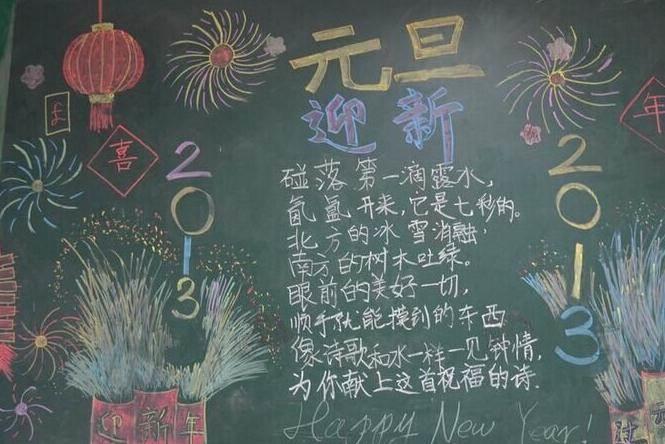 元旦
迎新
碰落第一滴露水,
氤氲开来,它是七彩的。
北方的冰雪消融,
南方的树木吐绿。
眼前的美好一切,
顺手就能摸到的东西
像诗歌和水一样一见钟情,
为你献上这首祝福的诗.
Happy New Year!
喜
2013
迎新年
年
2013